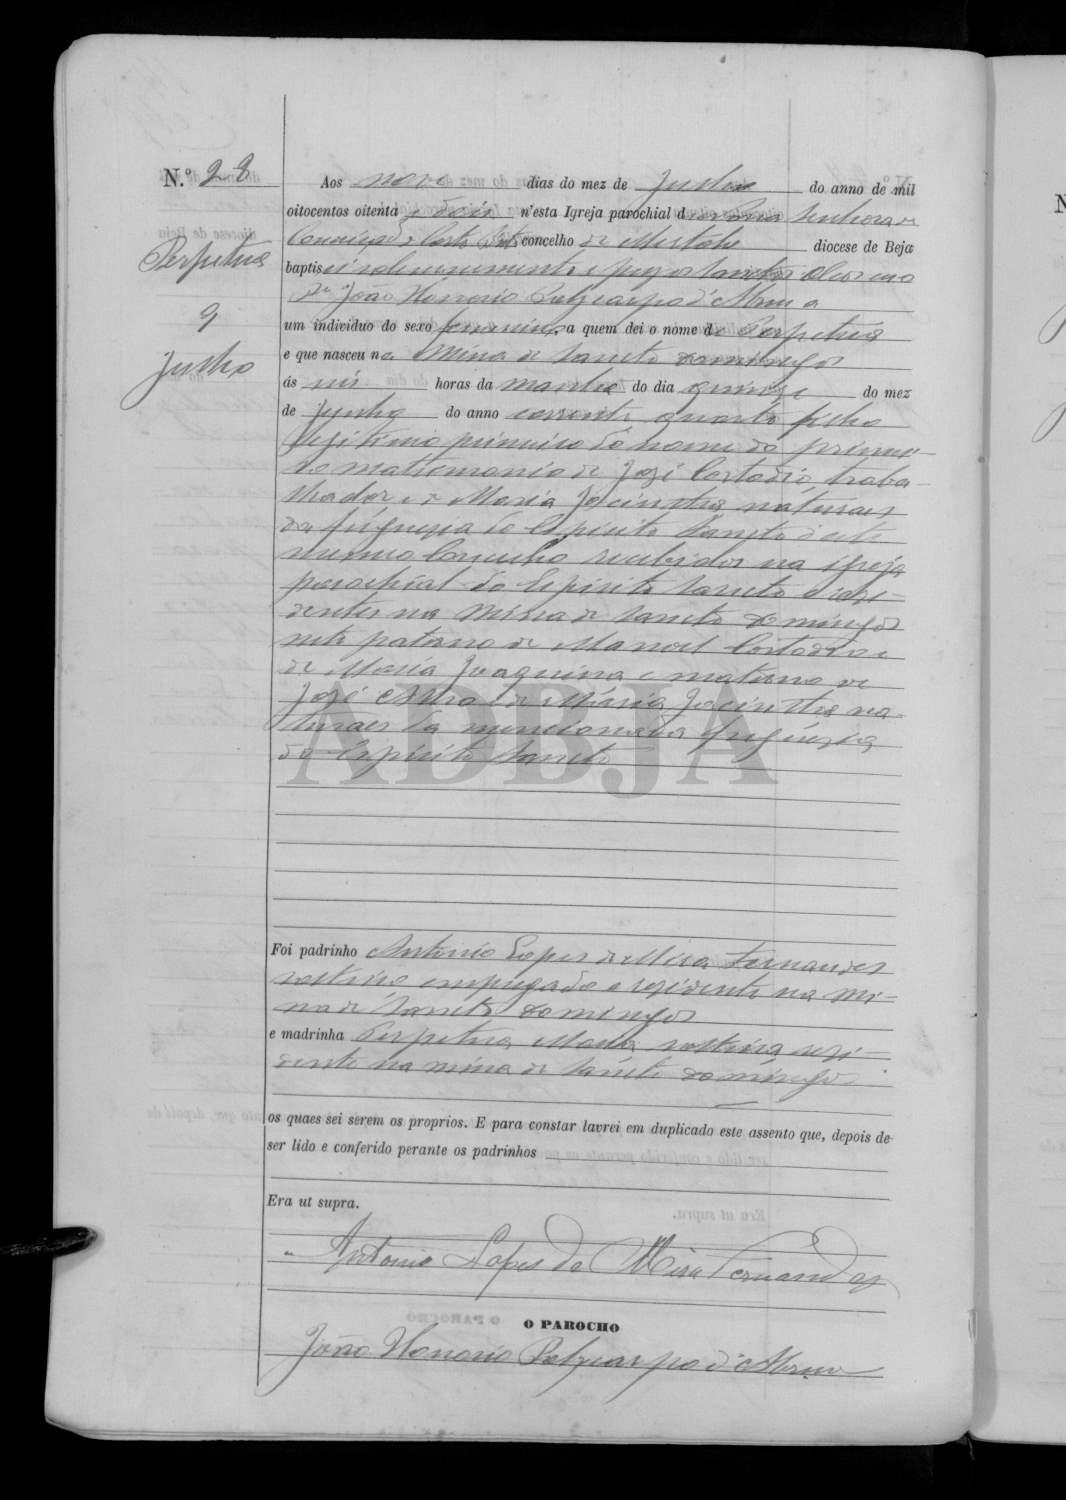 N.º 28
Perpetua
9
Julho
Aos nove dias do mez de Julho do anno de mil
oitocentos oitenta e dois n'esta Igreja parochial de Nossa Senhora da
Conceição concelho de Mertola diocese de Beja
baptisei solemnemente e puz os Sanctos Oleos eu o
João Honorio Polycarpo d'Abreu a
um individuo do sexo femenino, a quem dei o nome de Perpetua
e que nasceu na Mina de Sancto Domingos
ás horas da manhã do dia quinze do mez
de Junho do anno corrente quarto filho
legitimo primeiro do nome do primei-
ro matremonio de José Costodio, traba-
lhador e de Maria Jacintha naturaes
da freguezia do Espirito Sancto d'este
mesmo Concelho recebidos na igreja
parochial do Espirito Sancto e rezi-
dentes na Mina de Sancto Domingos
neta paterna de Manoel Costodio e
de Maria Joaquina e materna de
José e de Maria Jacintha na-
turaes da mencionada freguezia
do Espirito Sancto
Foi padrinho Antonio Lopes de Mira Fernandes
solteiro empregado e rezidente na Mi-
na de Sancto Domingos
e madrinha Perpetua Maria solteira rezi-
dente na mina de Sancto Domingos
os quaes sei serem os proprios. E para constar lavrei em duplicado este assento que, depois de
ser lido e conferido perante os padrinhos
Era ut supra.
Antonio Lopes de Mira Fernandes
O PAROCHO
João Honorio Polycarpo d'Abreu
ADBJA